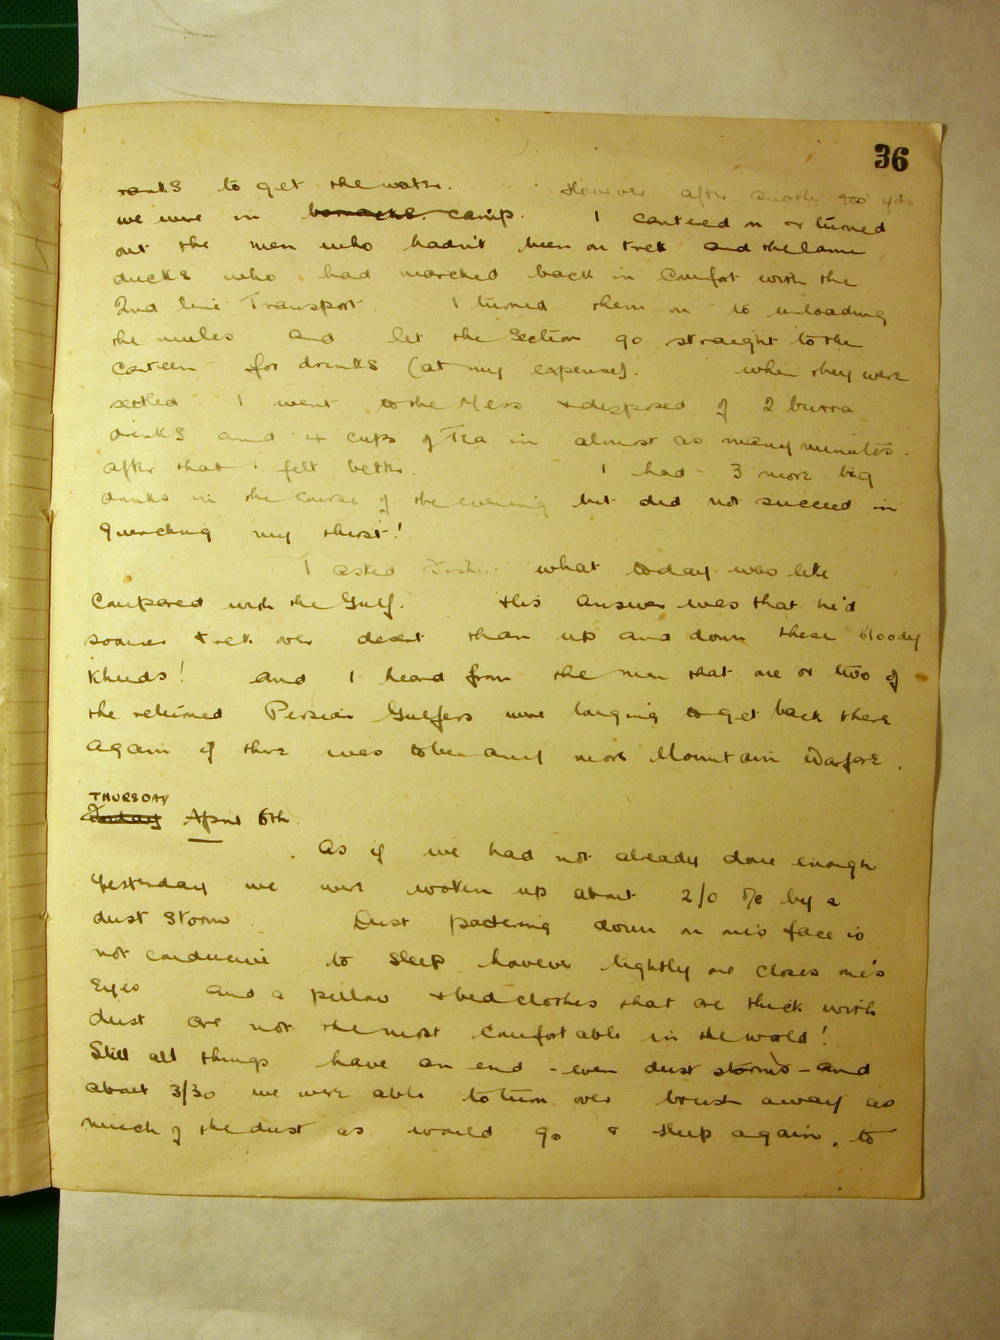 36
ranks to get the water. However after another 400 yds
we were in barracks. camp. I cantered on & turned
out the men who hadn't been on trek and the lame
ducks who had marched back in comfort with the
2nd line Transport. I turned them on to unloading
the mules and let the section go straight to the
canteen for drinks (at my expense). When they were
settled I went to the Mess & disposed of 2 burra
drinks and 4 cups of Tea in almost as many minutes.
After that I felt better. I had 3 more big
drinks in the course of the evening but did not succeed in
quenching my thirst!
I asked what today was like
compared with the Gulf. His answer was that he'd
sooner trek over desert than up and down these bloody
Khuds! And I heard from the men that one or two of
the returned Persian Gulfers were longing to get back there
again if there was to be any more Mountain Warfare.
THURSDAY
April 6th
As if we had not already done enough
yesterday we were woken up about 2/0 by a
dust storm. Dust pattering down on one's face is
not conducive to sleep however tightly one closes one's
eyes and a pillow & bedclothes that are thick with
dust are not the most comfortable in the world!
Still all things have an end - even dust storms - and
about 3/30 we were able to turn over brush away as
much of the dust as would go & sleep again, to